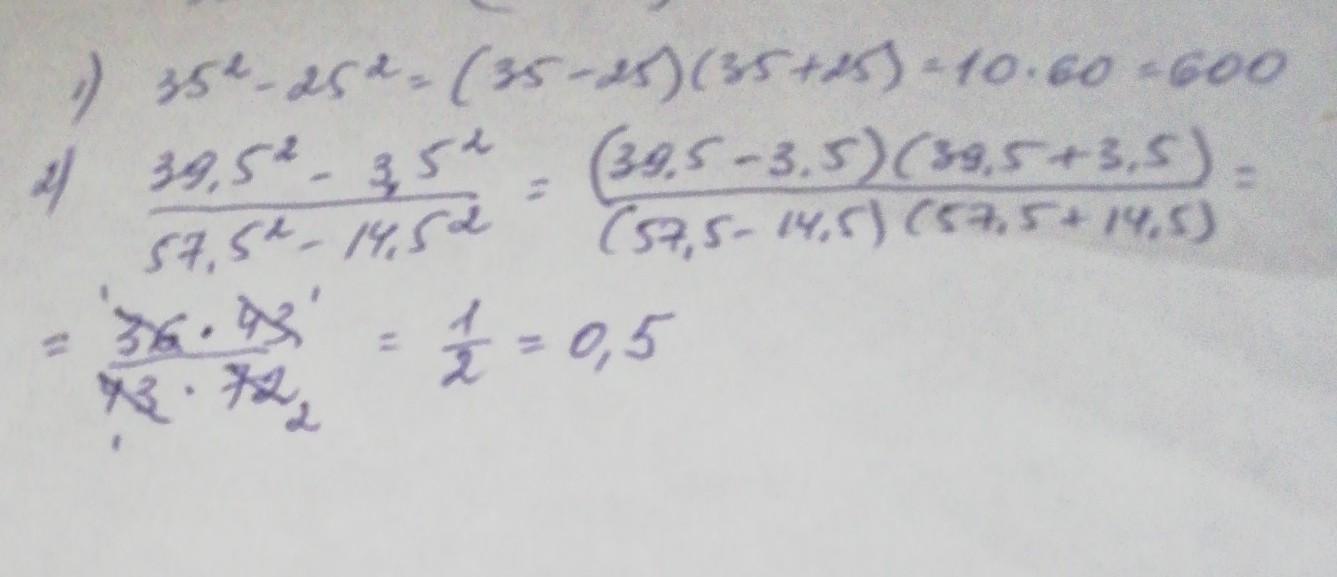 1) 35² - 25² = (35 - 25)(35 + 25) = 10 · 60 = 600
2) (39,5² - 3,5²)/(57,5² - 14,5²) = ((39,5 - 3,5)(39,5 + 3,5))/((57,5 - 14,5)(57,5 + 14,5)) =
= (36 · 43)/(43 · 72) = 1/2 = 0,5